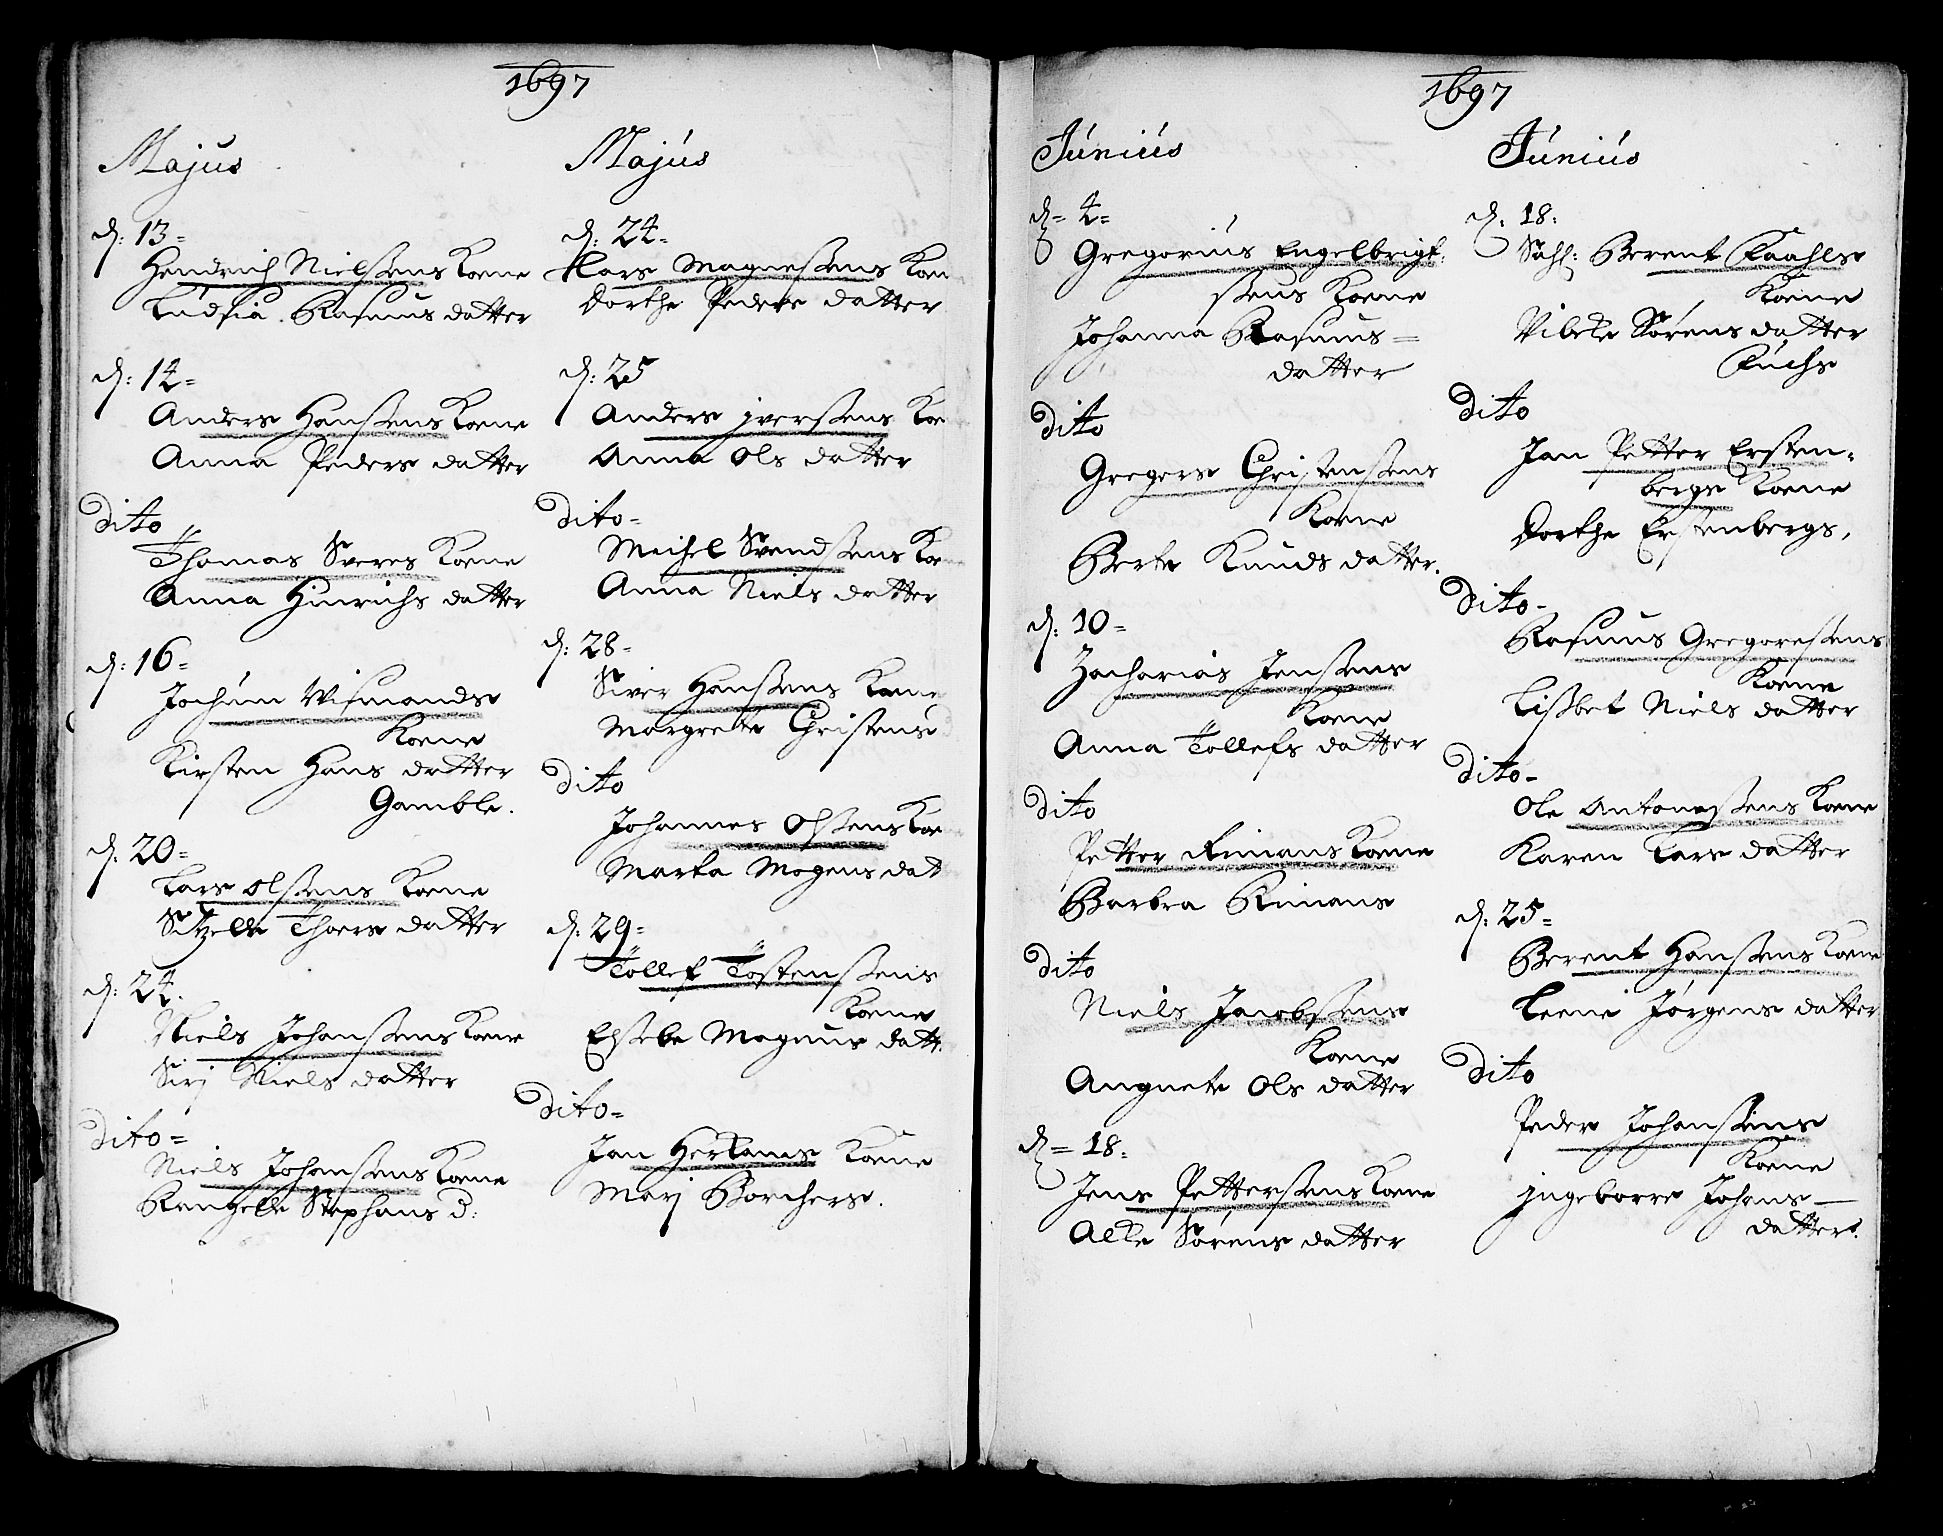 1697
Majus
d: 13=
Hendrich Nielssens Koene
Ludsia. Rasmus datter
d: 14=
Anders Hanssens Koene
Anna Peders datter
dito
Thomas Sveres Koene
Anna Hinrichs datter
d: 16=
Jochum Wismands
Koene
Kirsten Hans datter
Gamble.
d: 20=
Lars Olssens Koene
Sitzelle Thoers datter
d: 24.
Niels Johanssens Koene
Sirj Niels datter
dito=
Niels Johanssens Koene
Rangelle Stephans d:
Majus
d: 24=
Lars Magnessens Koen
Dorthe Peders datter
d: 25
Anders jverssens Koe
Anna Ols datter
dito=
Meihel Svendssens Koe
Anna Niels datter
d: 28=
Siver Hanssens Koene
Margrete Christens
dito
Johannes Olssens Koe
Marta Mogens dat
d: 29=
Tollef Tostenssens
Koene
Elssebe Magnus datt:
dito=
Jan Hermans Koene
Marj Borchers.
1697
Junius
d= 4=
Gregorius Engelbrigt=
ssens Koene
Johanna Rasmus=
datter
dito
Gregers Christenssens
Koene
Berte Knuds datter.
d: 10=
Zacharias Jenssens
Koene
Anna Tollefs datter
dito
Petter Rimans Koene
Barbra Rimans
dito
Niels Jacobssens
Koene
Angnete Ols datter
d= 18:
Jens Petterssens Koene
Alle Sørens datter
Junius
d: 18:
Sahl: Berent Kaahls
Koene
Vibeke Sørens datter
Fuchs
dito
Jan Petter Ersten=
bergs Koene
Dorthe Erstenbergs,
dito=
Rasmus Gregoressens
Koene
Lissbet Niels datter
dito=
Ole Antonessens Koene
Karen Lars datter
d: 25=
Berent Hanssens Koene
Leene Jørgens datter
dito
Peder Johanssens
Koene
jngeborre Johans—
datter.